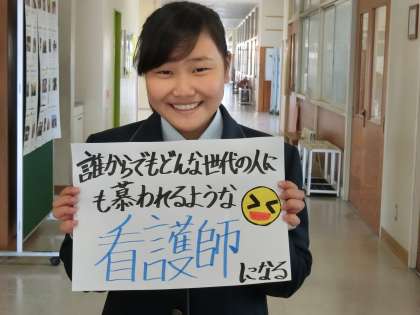 誰からでもどんな世代の人に
も慕われるような
看護師
になる